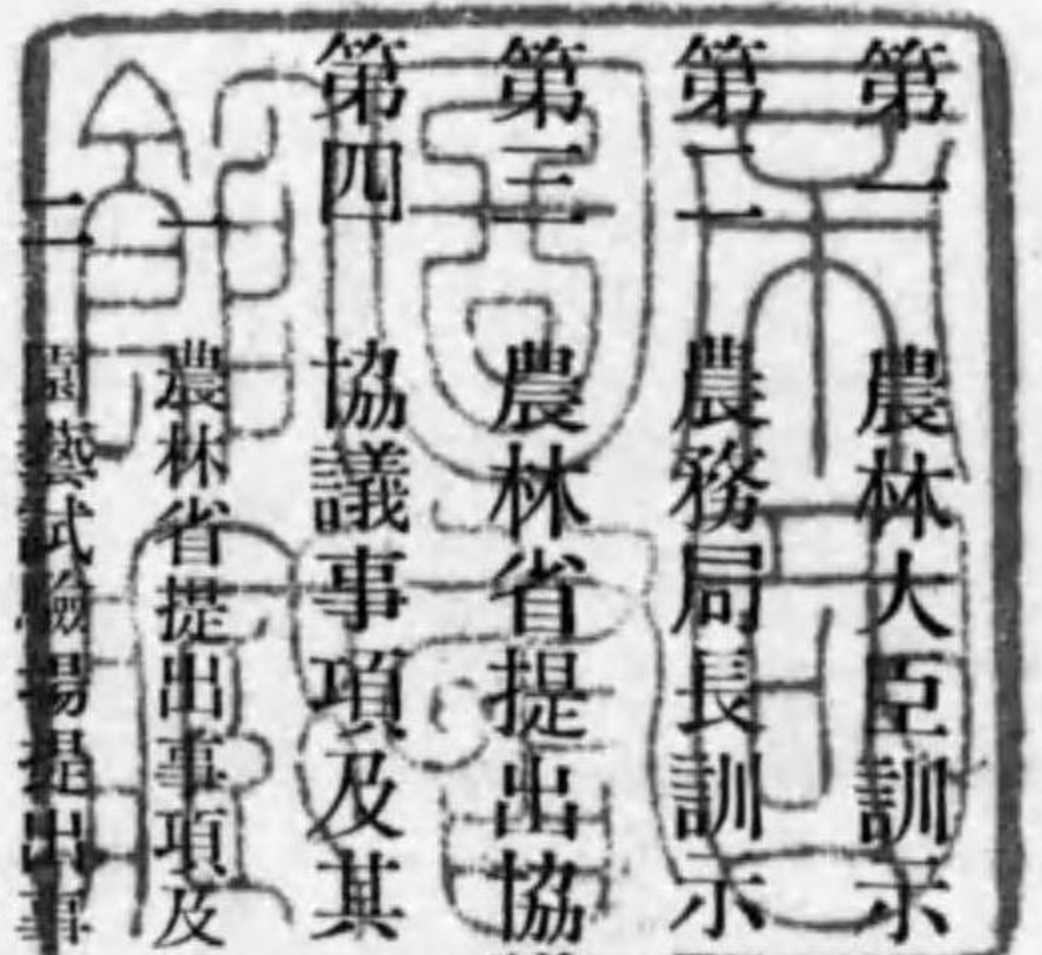 第一 農林大臣訓示
第二 農務局長訓示
第三 農林省提出協
第四 協議事項及其
一 農林省提出事項及
二 園藝試驗場提出事